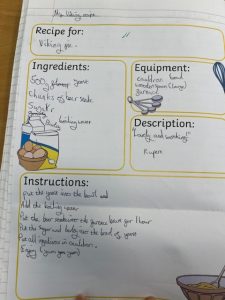 My Viking recipe
Recipe for:
Viking
Ingredients:
500g yeast
Chunks of bear steak
Sugar
boiling water
Equipment:
cauldron bowl
wooden spoon (large)
Description:
"Lovely and
Instructions:
Put the yeast into the bowl and
Add the boiling water
Put the bear steak over the furnace leave per 1 hour
Put the sugar and into the bowl of yeast
Put all ingredients in cauldron.
Enjoy (yum yum yum)